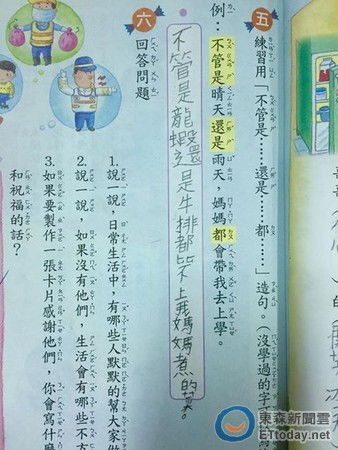 五 練習用「不管是……還是……都……」造句。(沒學過的字
例：不管是晴天還是雨天，媽媽都會帶我去上學。
不管是龍蝦還是牛排都比不上我媽媽煮的菜。
六 回答問題
1. 說一說，日常生活中，有哪些人默默的幫大家做
2. 說一說，如果沒有他們，生活會有哪些不方
3. 如果要製作一張卡片感謝他們，你會寫什麼
和祝福的話？
東森新聞雲
ETtoday.net